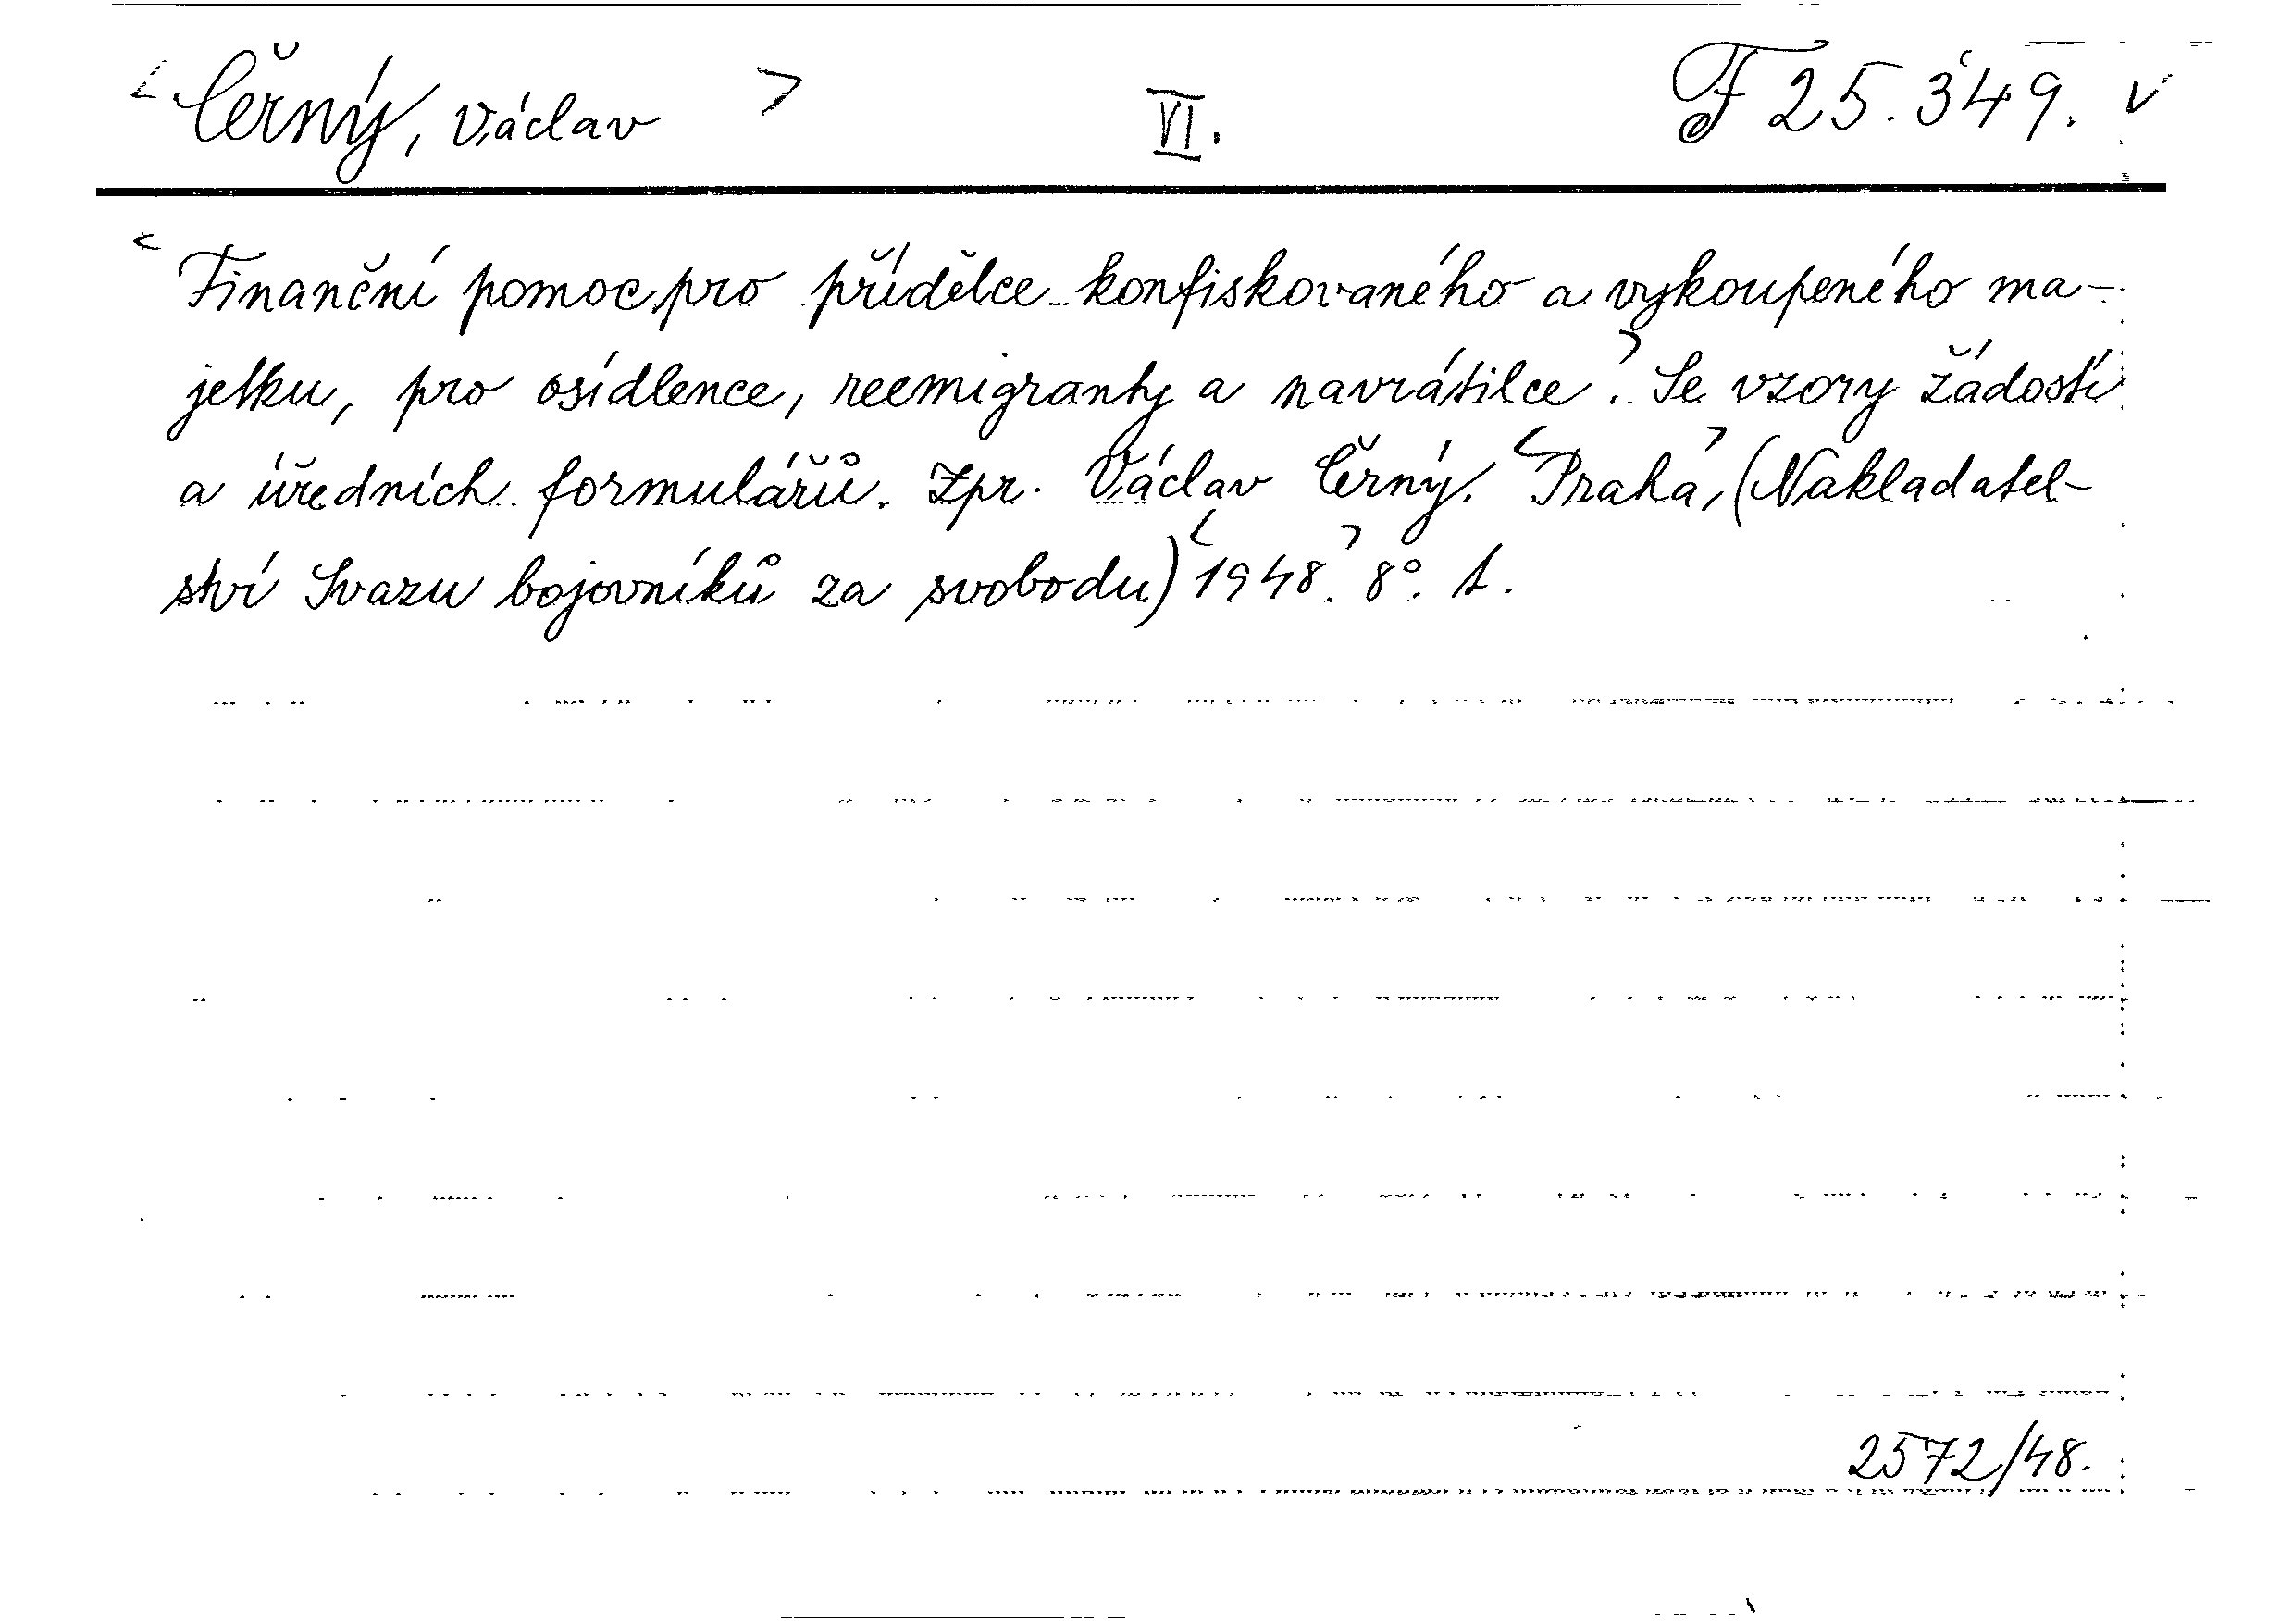 <Černý, Václav> VI. F 25.349. v
<Finanční pomoc pro přídělce konfiskovaného a vykoupeného ma-
jetku, pro osídlence, reemigranty a navrátilce>. Se vzory žádostí
a úředních formulářů. Zpr. Václav Černý. <Praha>, (Nakladatel-
ství Svazu bojovníků za svobodu) <1948>. 8°. 1.
2572/48.